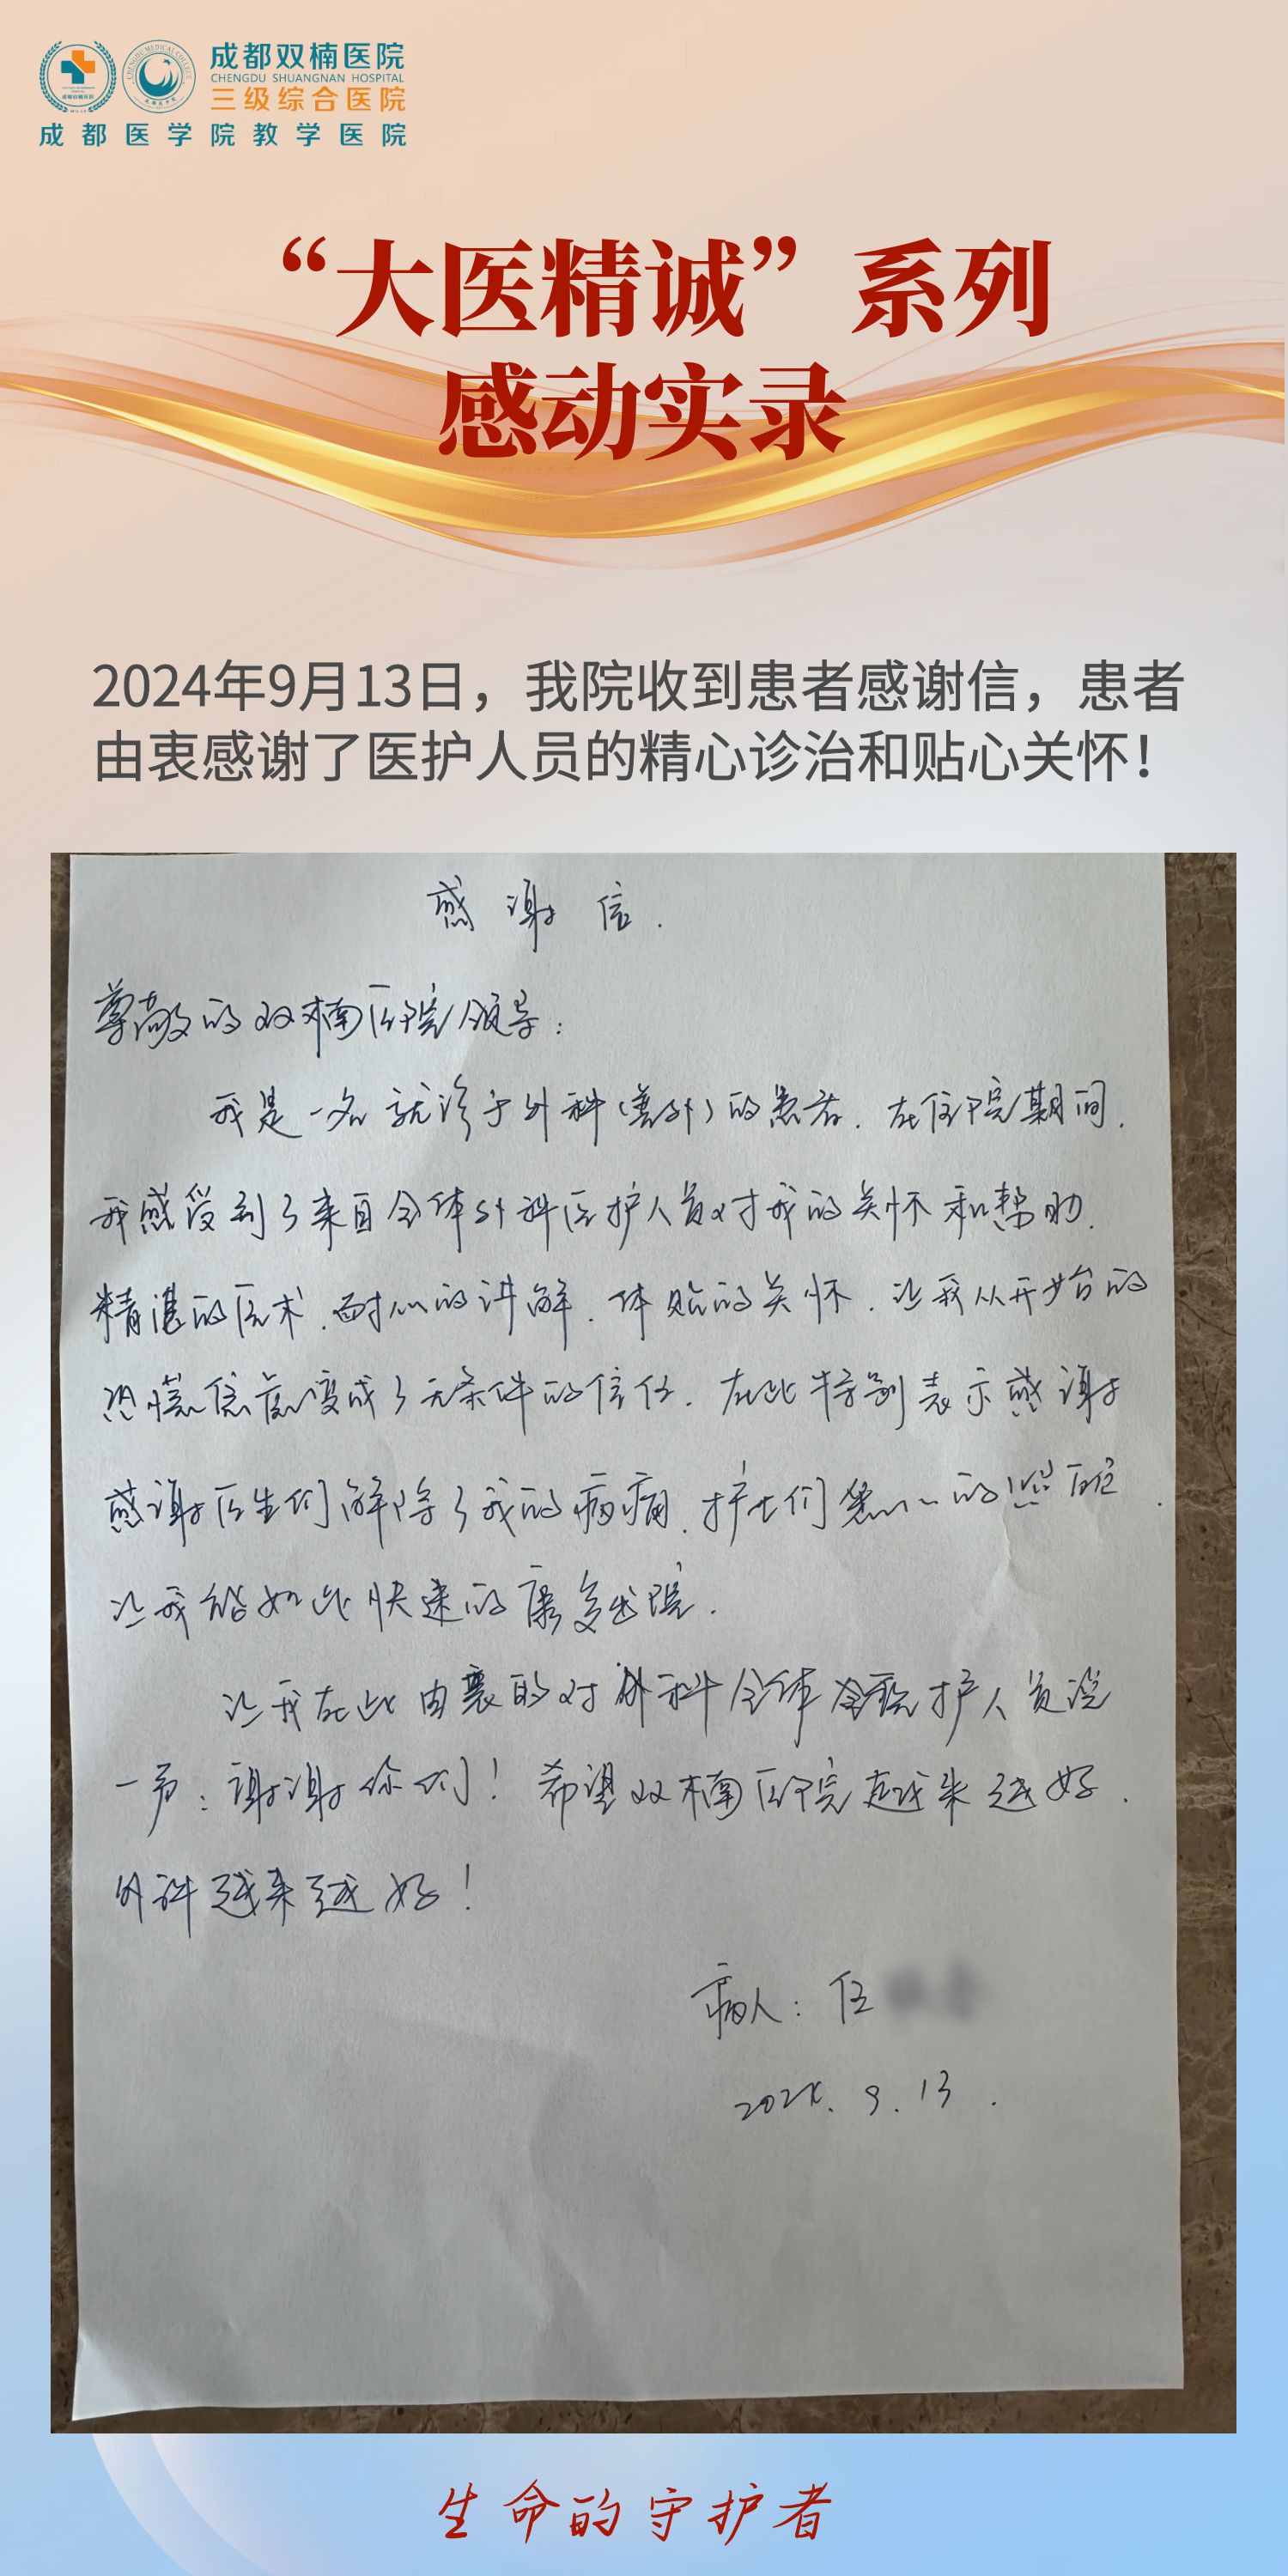 成都双楠医院
CHENGDU SHUANGNAN HOSPITAL
三级综合医院
成都医学院教学医院
“大医精诚”系列
感动实录
2024年9月13日，我院收到患者感谢信，患者
由衷感谢了医护人员的精心诊治和贴心关怀！
感谢信.
尊敬的双楠医院领导：
我是一名就诊于外科(普外)的患者.在住院期间.
我感受到了来自全体外科医护人员对我的关怀和帮助.
精湛的医术.耐心的讲解.体贴的关怀.让我从开始的
恐慌焦虑变成了无条件的信任.在此特别表示感谢
感谢医生们解除了我的病痛.护士们悉心的照顾.
让我能如此快速的康复出院.
让我在此由衷的对外科全体医护人员说
一声：谢谢你们！希望双楠医院越来越好.
外科越来越好！
病人：任
2024.9.13.
生命的守护者